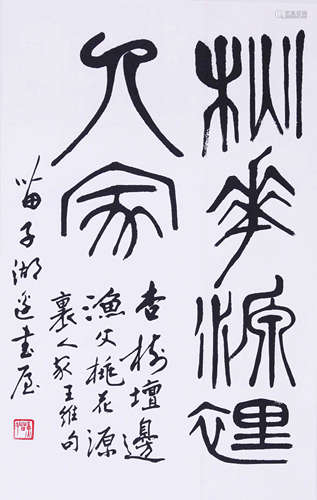 桃花源裡
人家
杏樹壇邊
漁父桃花源
裏人家王維句
苗子湖邊書屋